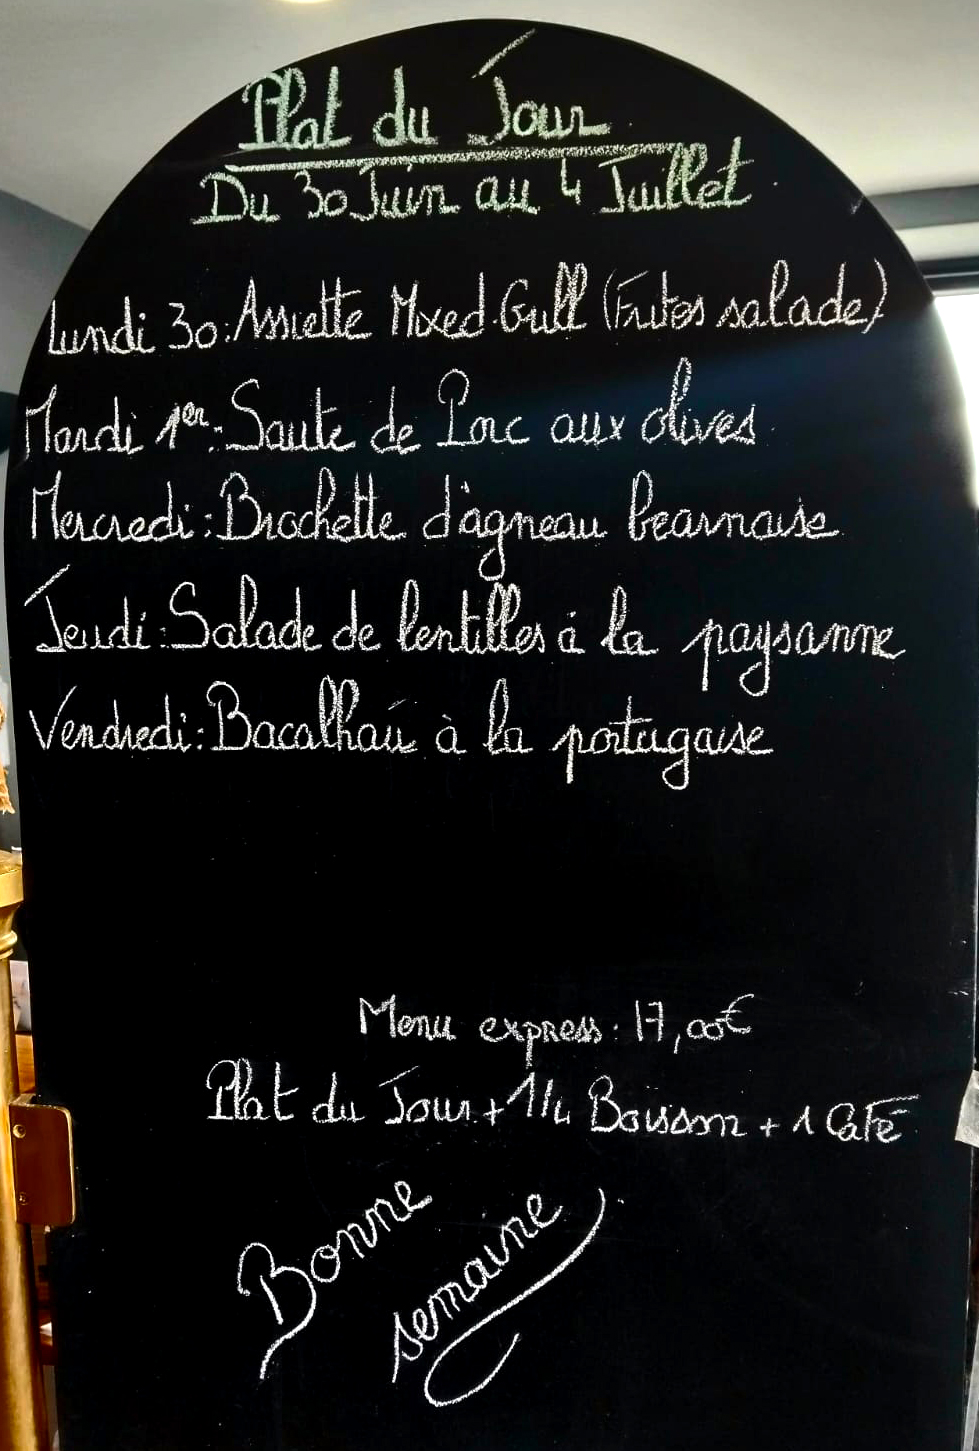 Plat du Jour
Du 30 Juin au 4 Juillet
Lundi 30: Assiette Mixed Grill (Frites salade)
Mardi 1er: Saute de Porc aux olives
Mercredi: Brochette d'agneau bearnaise
Jeudi: Salade de lentilles à la paysanne
Vendredi: Bacalhaú à la portugaise
Menu express: 17,00€
Plat du Jour + 1/4 Boisson + 1 Café
Bonne
semaine